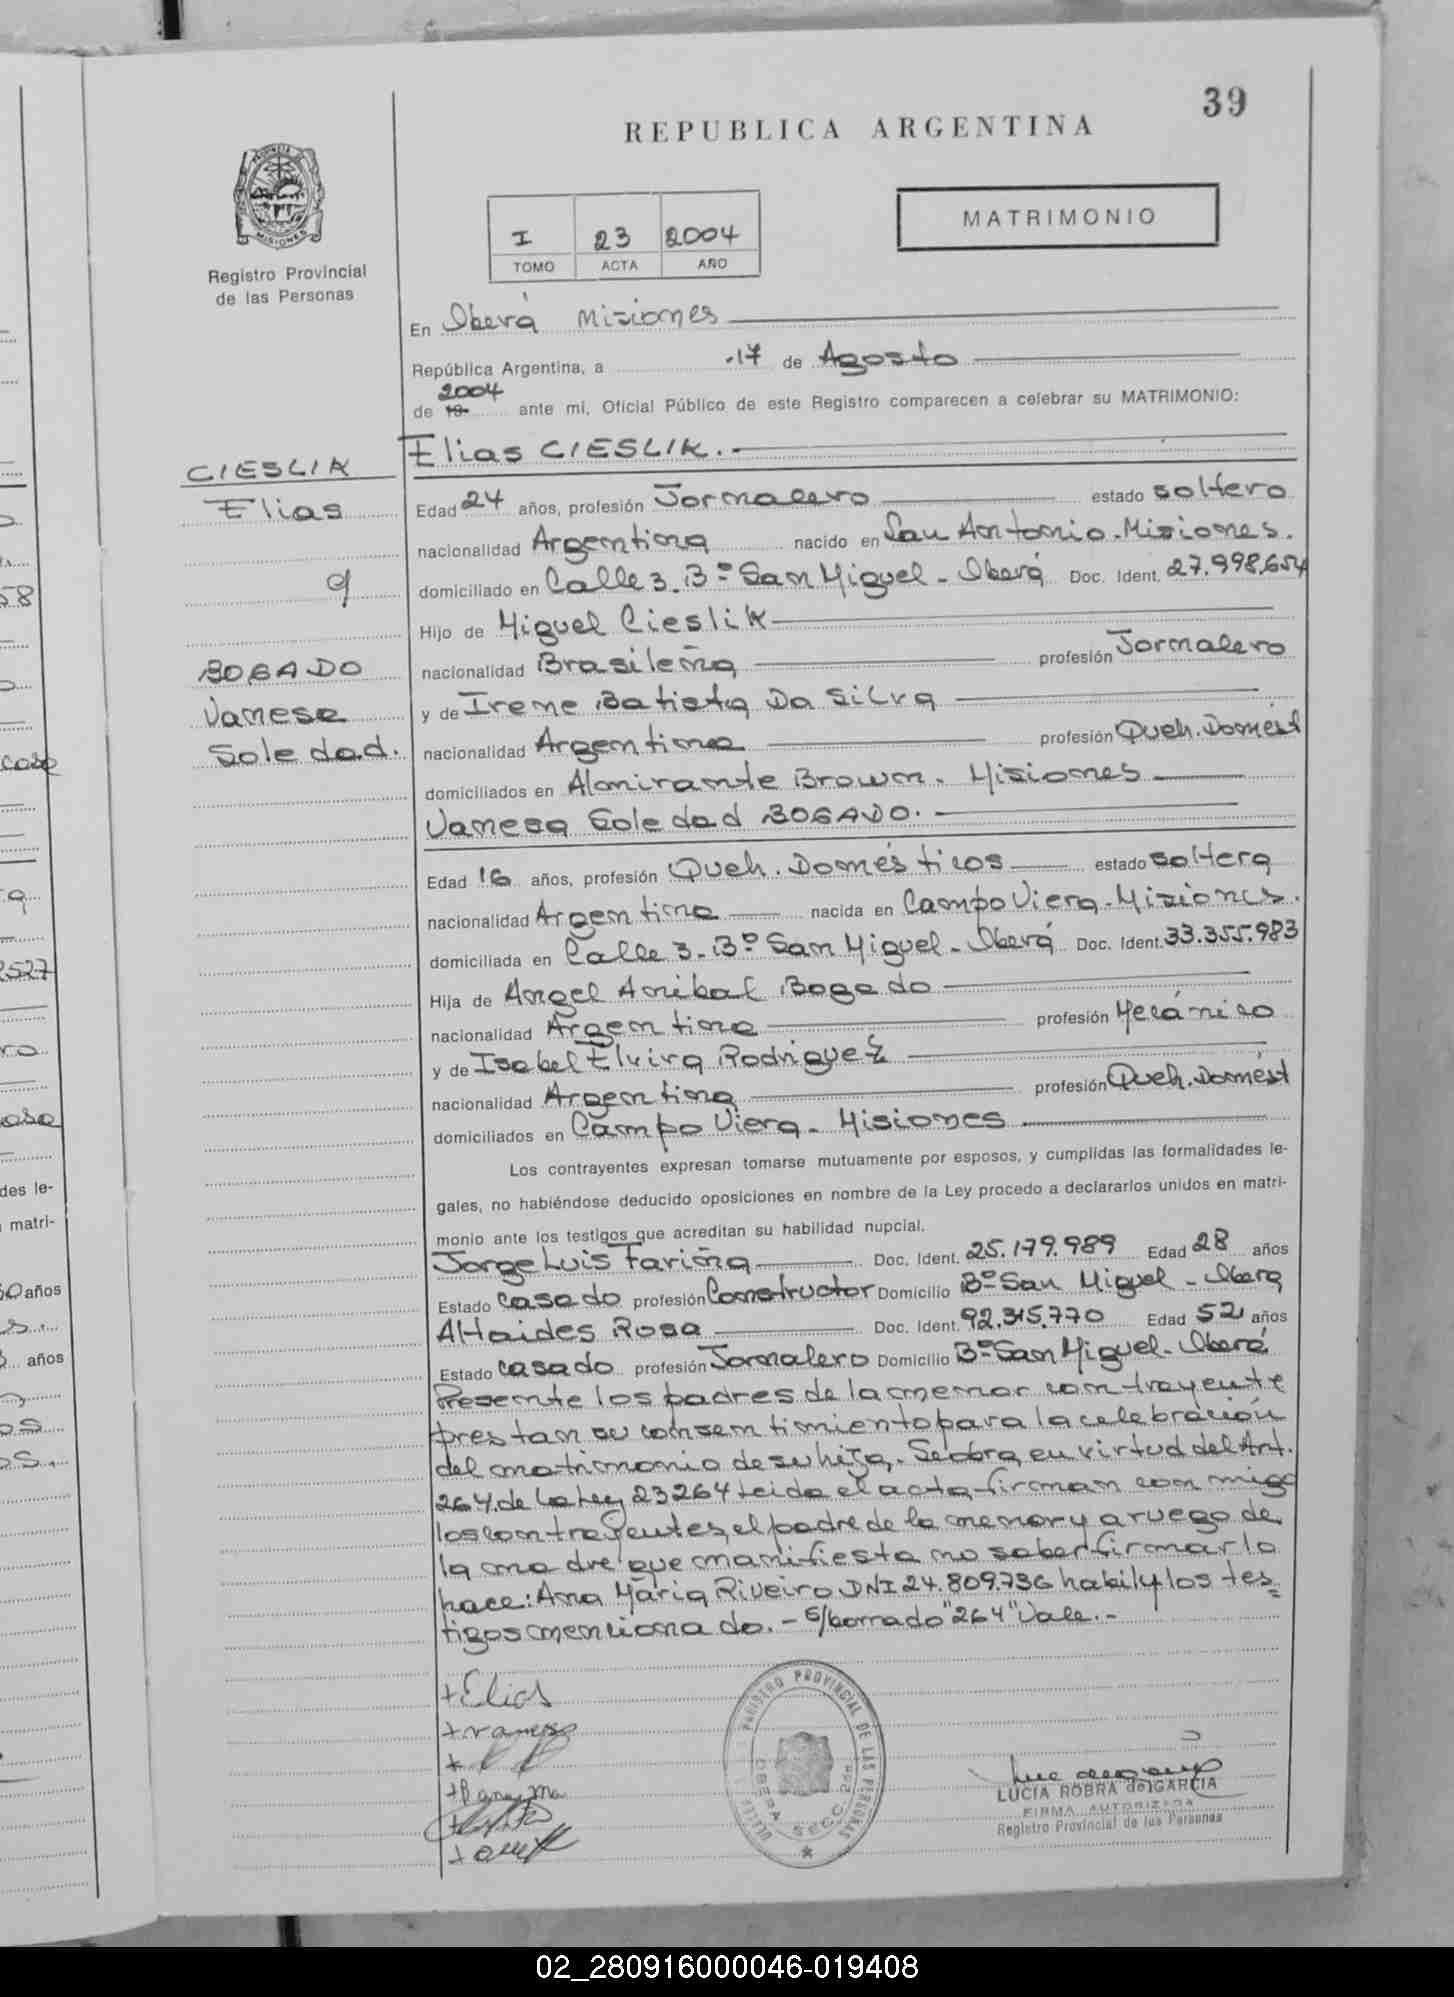 39
REPUBLICA ARGENTINA
PROVINCIA DE
MISIONES
Registro Provincial
de las Personas
I 23 2004
TOMO ACTA AÑO
MATRIMONIO
En Oberá Misiones
República Argentina, a 17 de Agosto
2004
de 19 ante mí, Oficial Público de este Registro comparecen a celebrar su MATRIMONIO:
CIESLIK
Elias
y
BOGADO
Vanesa
Soledad.
Elias CIESLIK.-
Edad 24 años, profesión Jornalero estado soltero
nacionalidad Argentina nacido en San Antonio-Misiones.
domiciliado en Calle 3. Bº San Miguel - Oberá Doc. Ident. 27.998.654
Hijo de Miguel Cieslik
nacionalidad Brasileña profesión Jornalero
y de Irene Batista Da Silva
nacionalidad Argentina profesión Queh. Domést
domiciliados en Almirante Brown. Misiones
Vanesa Soledad BOGADO.-
Edad 16 años, profesión Queh. Domésticos estado soltera
nacionalidad Argentina nacida en Campo Viera-Misiones.
domiciliada en Calle 3. Bº San Miguel - Oberá Doc. Ident. 33.355.983
Hija de Angel Anibal Bogado
nacionalidad Argentina profesión Mecánico
y de Isabel Elvira Rodriguez
nacionalidad Argentina profesión Queh. Domést
domiciliados en Campo Viera - Misiones
Los contrayentes expresan tomarse mutuamente por esposos, y cumplidas las formalidades le-
gales, no habiéndose deducido oposiciones en nombre de la Ley procedo a declararlos unidos en matri-
monio ante los testigos que acreditan su habilidad nupcial.
Jorge Luis Fariña Doc. Ident. 25.179.989 Edad 28 años
Estado casado profesión Constructor Domicilio Bº San Miguel - Obera
Altaides Rosa Doc. Ident. 92.315.770 Edad 52 años
Estado casado profesión Jornalero Domicilio Bº San Miguel - Oberá
Presente los padres de la menor contrayente
prestan su consentimiento para la celebración
del matrimonio de su hija. Se obra en virtud del Art.
264 de la Ley 23264 Leida el acta firman con migo
los contrayentes, el padre de la menor y a ruego de
la madre que manifiesta no saber firmar lo
hace: Ana Maria Riveiro DNI 24.809.736 habil y los tes
tigos menciona do. - S/borrado "264" Vale.-
+ Elias
+ vanesa
REGISTRO PROVINCIAL DE LAS PERSONAS
OBERA SECC. 2da
LUCIA ROBRA de GARCIA
FIRMA AUTORIZADA
Registro Provincial de las Personas
58
case
2527
des le-
matri-
60 años
años
02_280916000046-019408